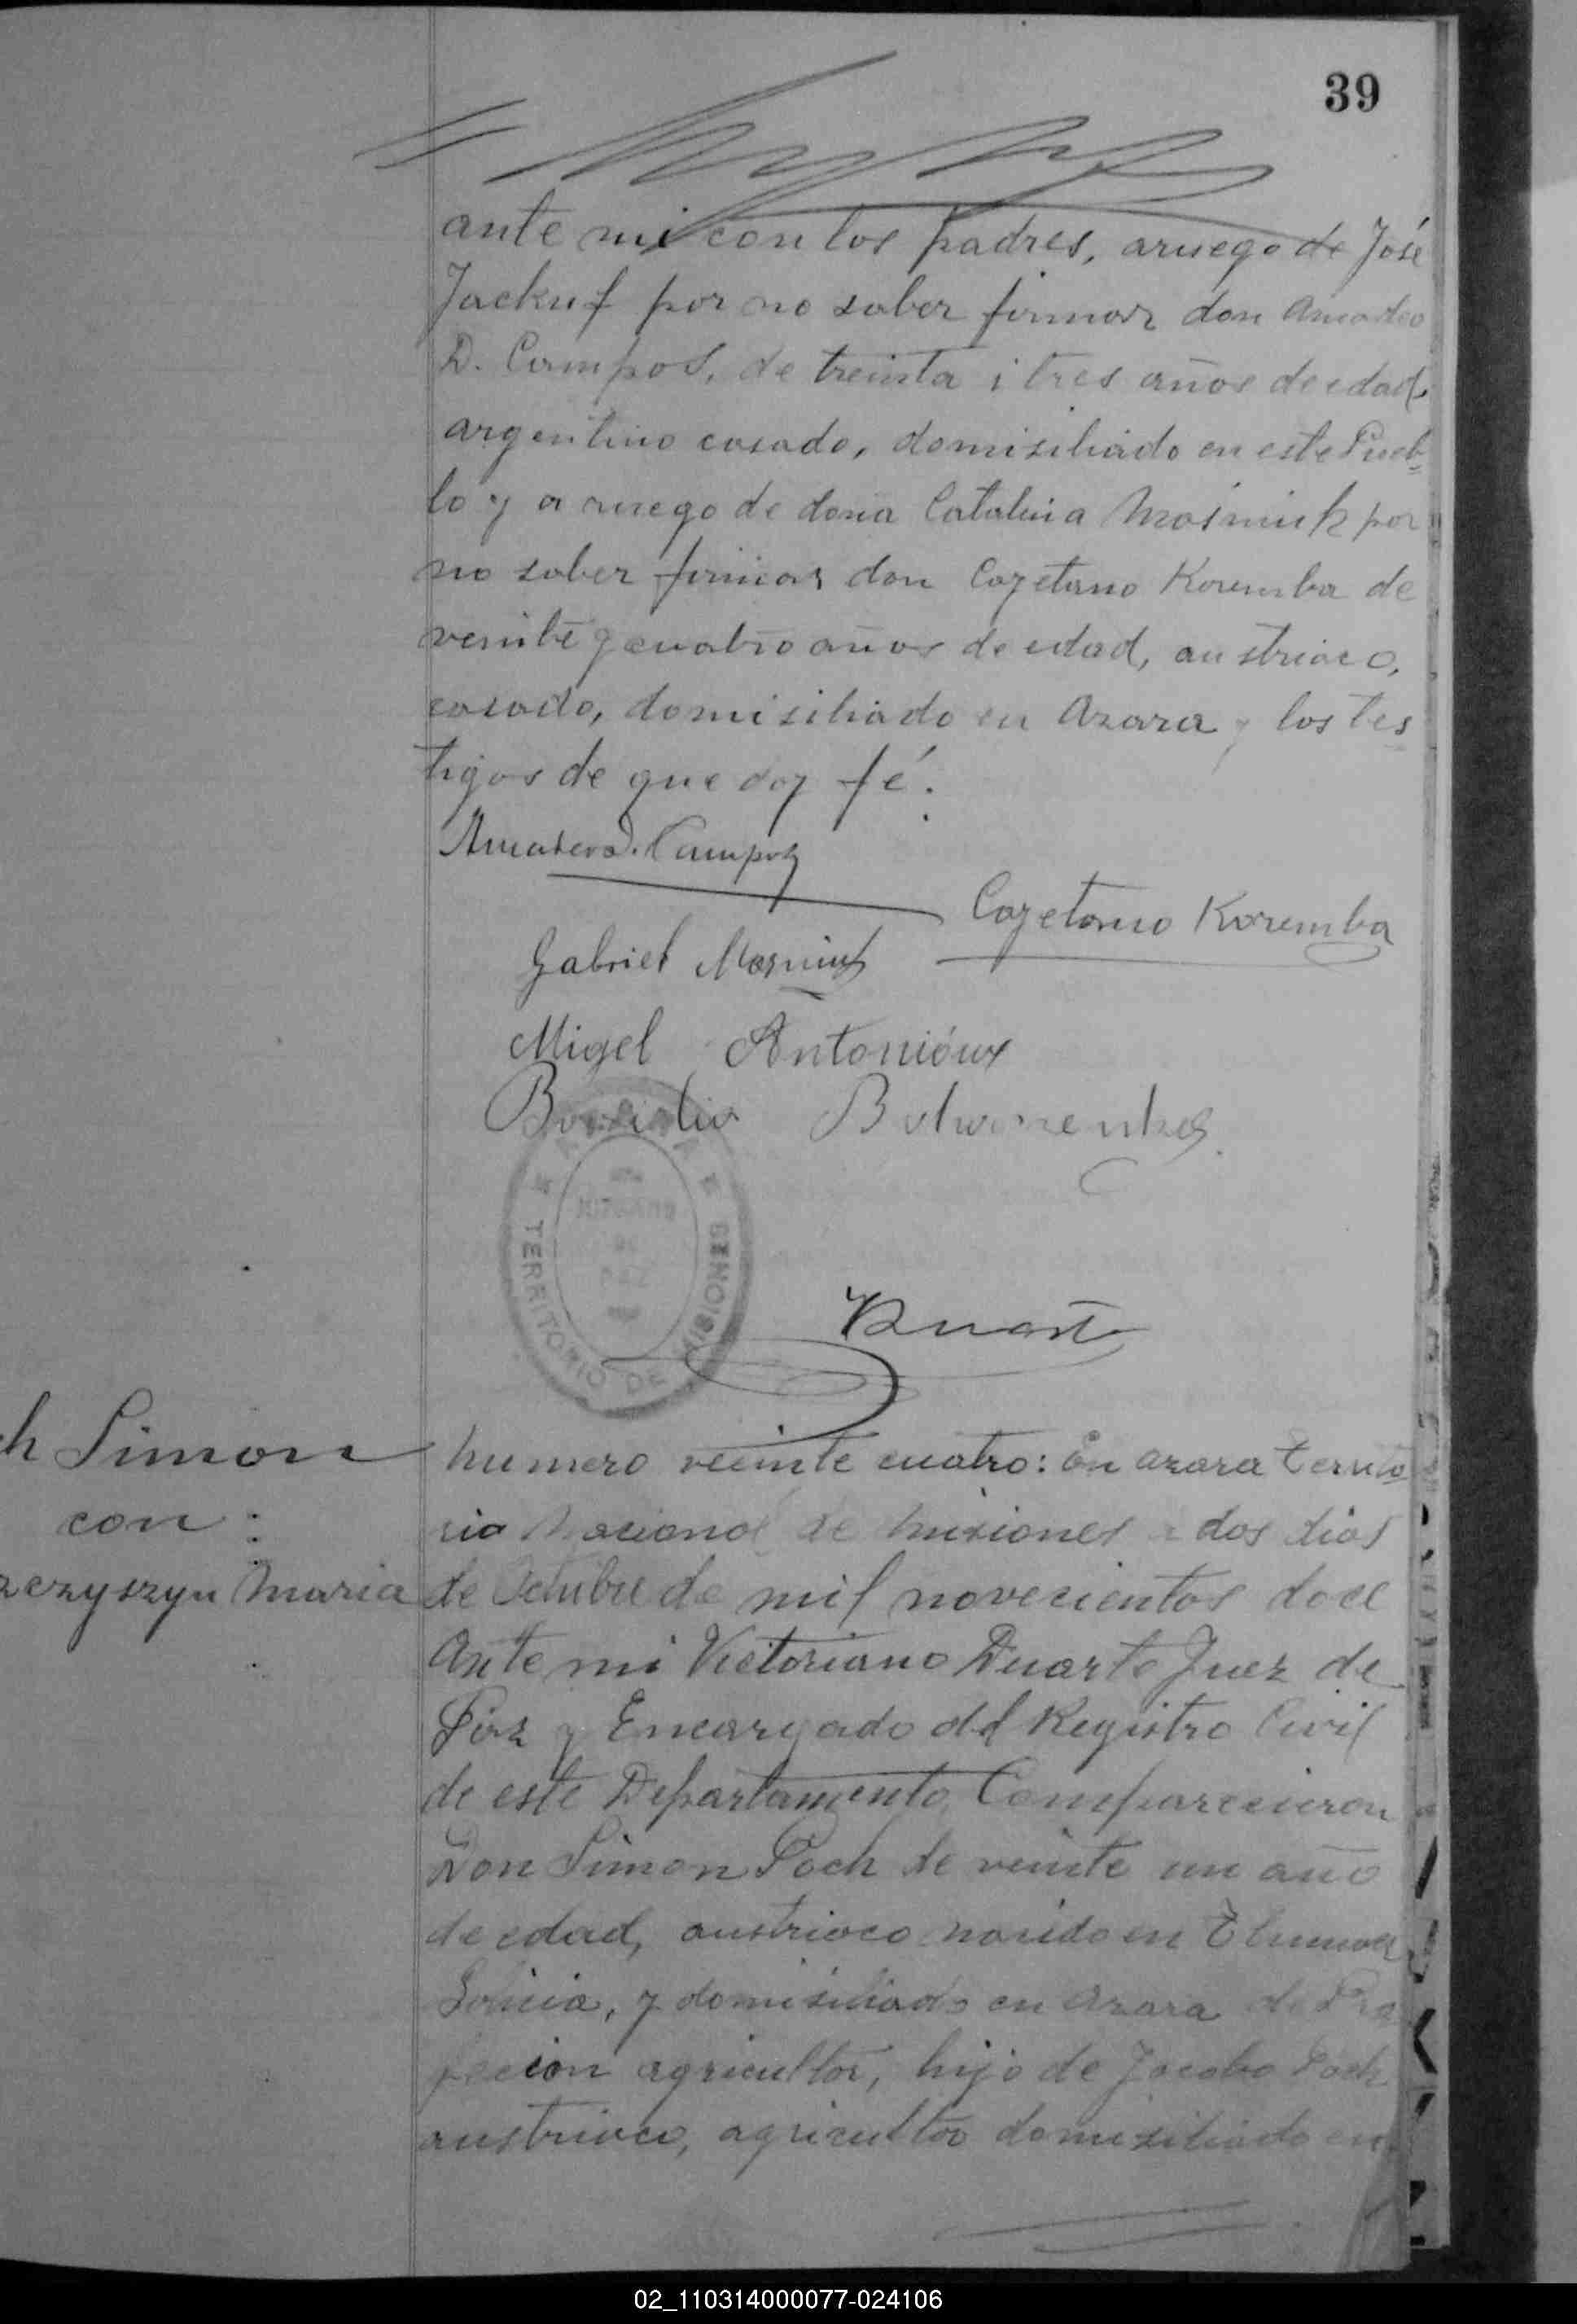 39
ante mi con los padres, aruego de José
Jackuf por no saber firmar don Amadeo
D. Campos, de treinta i tres años de edad,
argentino casado, domisiliado en este Pueb-
lo y a ruego de dona Catalina Mosniuk por
no saber firmar don Cayetano Koremba de
veinte y cuatro años de edad, austriaco,
casado, domisiliado en Azara y los tes
tigos de que doy fé.
Amadeo D. Campos
Cayetano Koremba
Gabriel Mosniuk
Migel Antoniów
Basilio
TERRITORIO DE MISIONES
JUZGADO
DE
PAZ
Duarte
h Simon
con:
zczyszyn Maria
Numero veinte cuatro: En Azara Territo
rio Nacional de Misiones a dos dias
de Octubre de mil novecientos doce
Ante mi Victoriano Duarte Juez de
Paz y Encargado del Registro Civil
de este Departamento, Comparecieron
Don Simon Poch de veinte un año
de edad, austriaco nasido en
Galicia, y domisiliado en Azara de Pro
fecion agricultor, hijo de Jacobo Poch
austriaco, agricultor domisiliado en
02_110314000077-024106